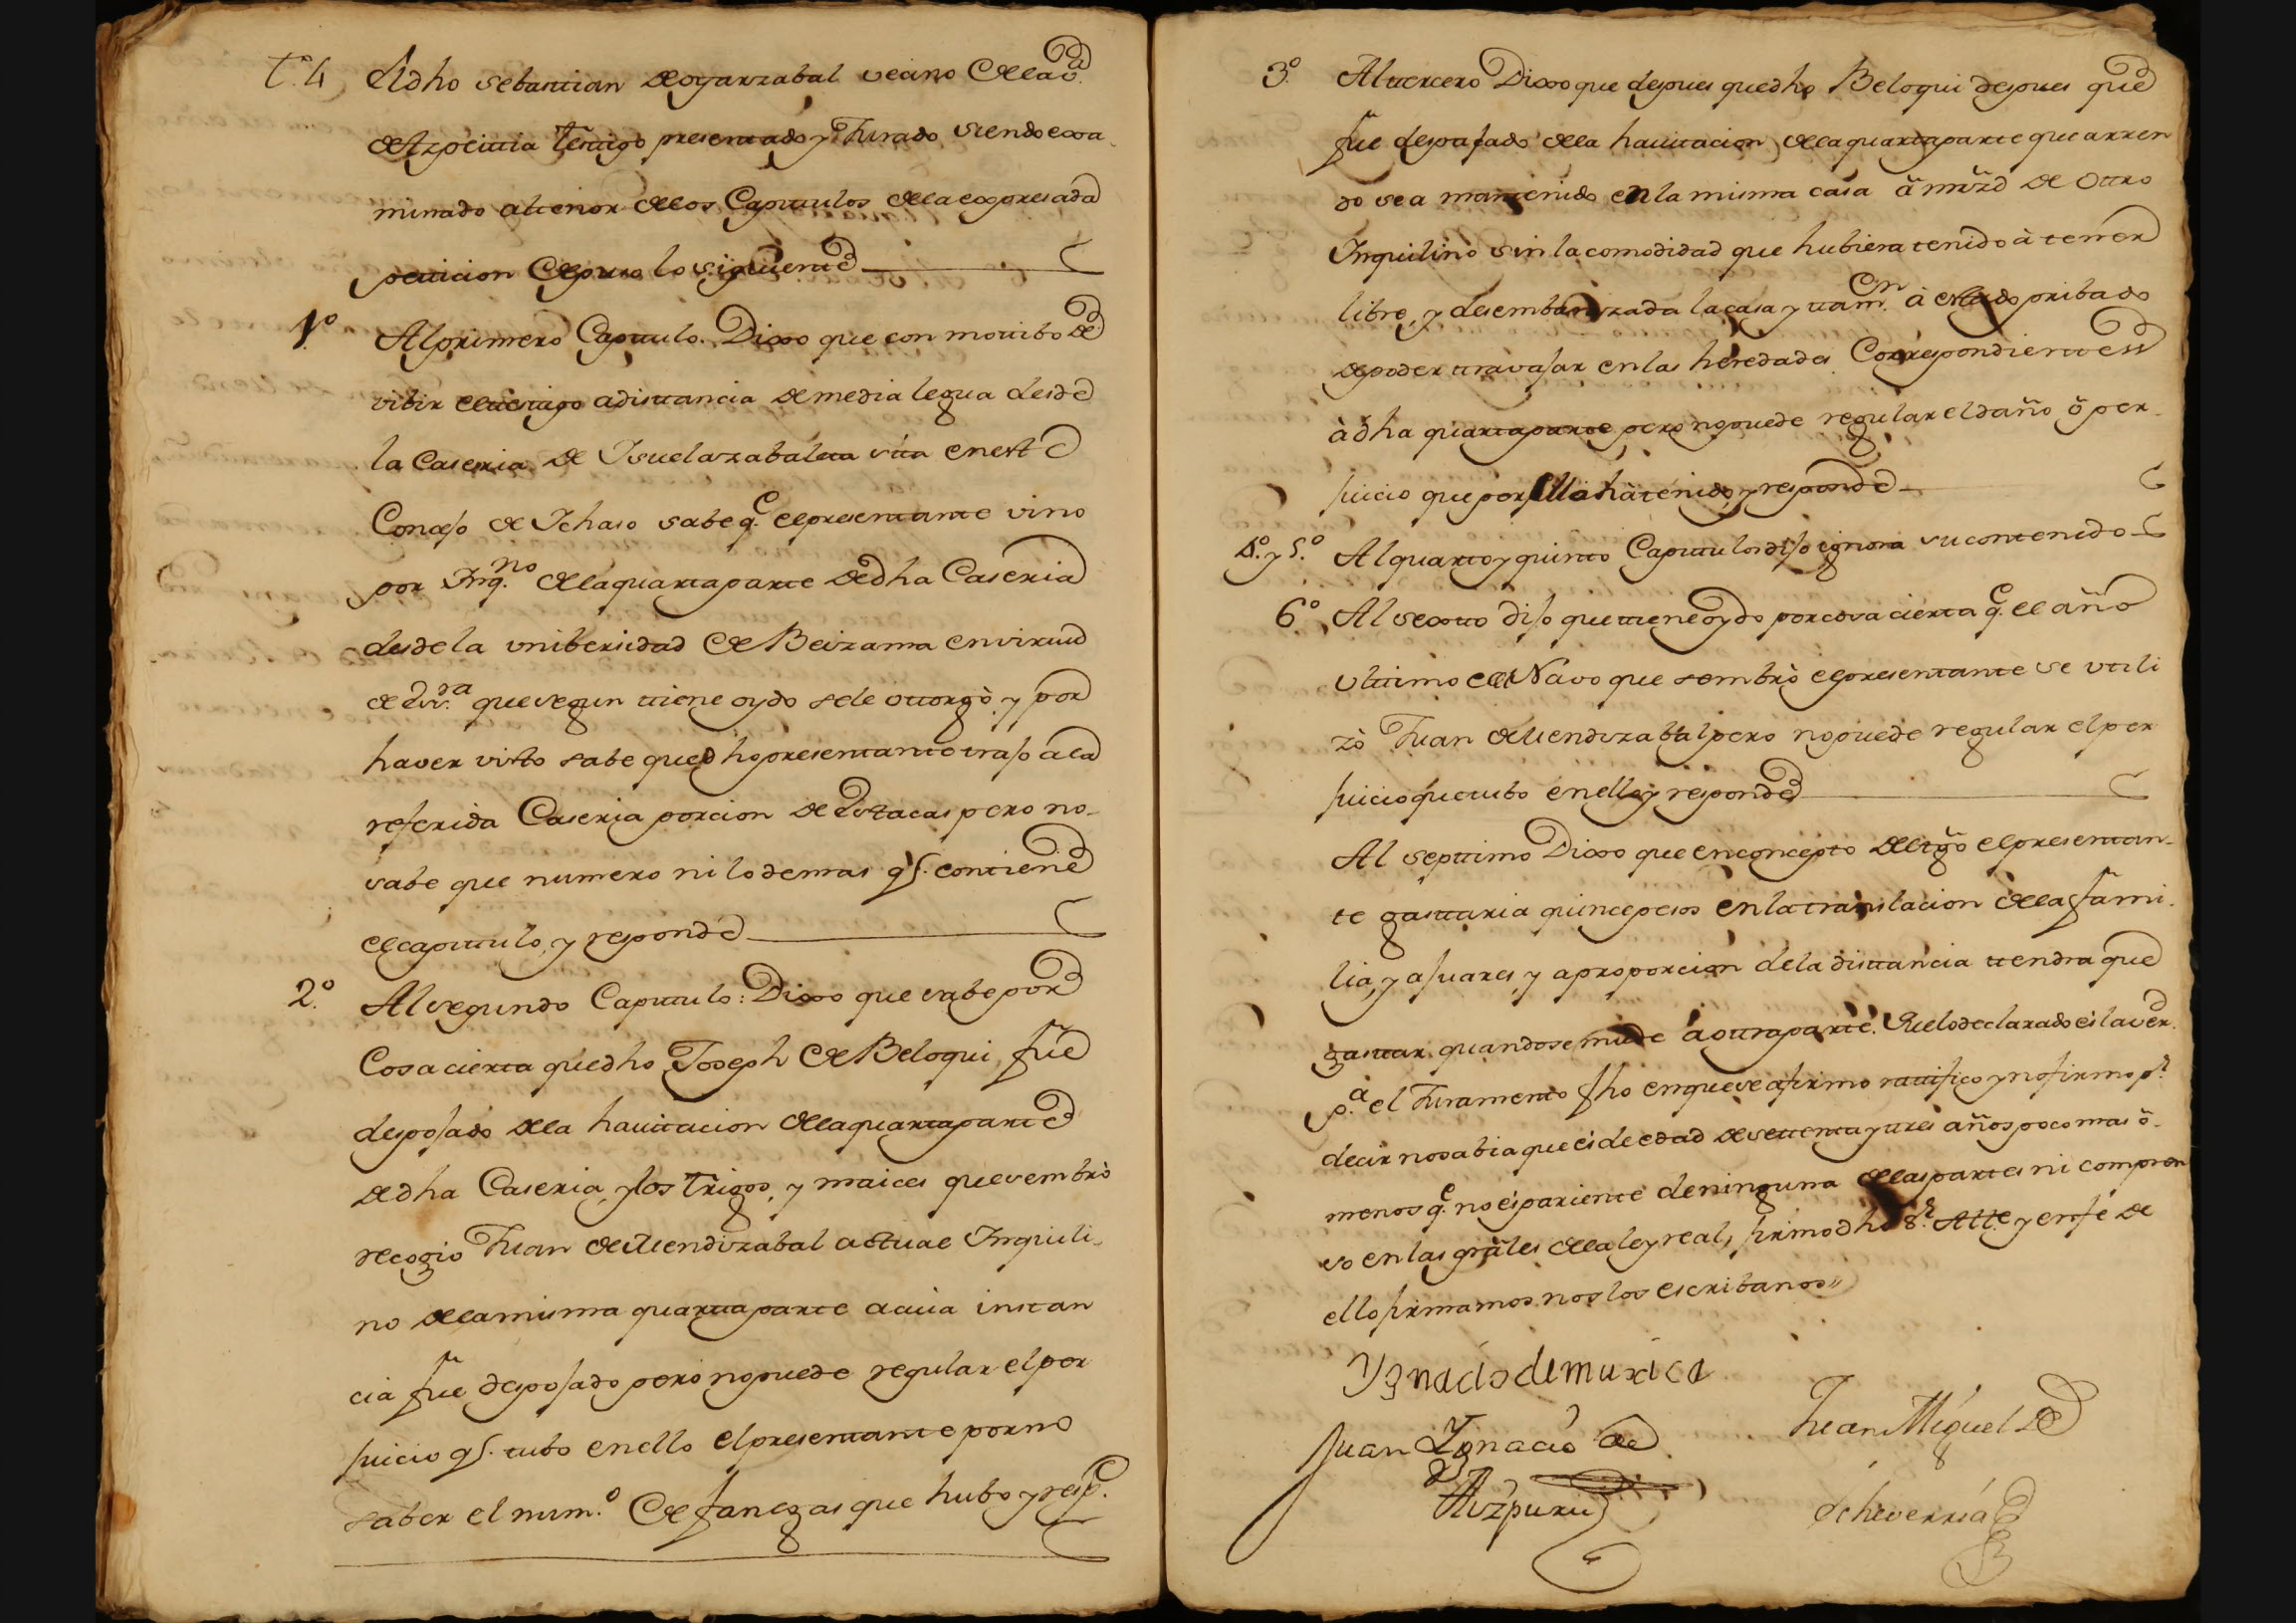 t.º 4 El dho Sebastian de oyarzabal vecino de la v.ª
de Azpeitia testigo presentado y Jurado siendo exa-
minado al tenor de los Capitulos de la expresada
peticion depuso lo siguiente
1.º Al primero Capitulo. Dixo que con motibo de
vibir el testigo a distancia de media legua desde
la Caseria de Isuelazabaleta sita en este
Concejo de Ichaso sabe q.e el presentante vino
por Inq.no de la quarta parte de dha Caseria
desde la unibersidad de Beizama en virtud
de que segun tiene oydo se le ottorgò, y por
haver visto sabe que dho presentante trajo a la
referida Caseria porcion de Estacas pero no-
sabe que numero ni lo demas q.e contiene
el capitulo, y responde
2.º Al segundo Capitulo: Dixo que sabe por
Cosa cierta que dho Joseph de Beloqui fue
despojado de la havitacion de la quarta parte
de dha Caseria, y los trigos, y maices que sembrò
recogio Juan de Mendizabal actual Inquili-
no de la misma quarta parte a cuia instan
cia fue despojado pero no puede regular el per
juicio q.e tubo en ello el presentante por no
saber el num.º de fanegas que hubo y resp.e
3.º Al tercero Dixo que despues que dho Beloqui despues que
fue despojado de la havitacion de la quarta parte que arren
do se a mantenido en la misma casa à mrzd de otro
Inquilino sin la comodidad que hubiera tenido à tener
libre, y desembarazada la casa y tam.en à estado pribado
de poder travajar en las heredades Correspondientes
à dha quarta parte pero no puede regular el daño ò per-
juicio que por ello hà tenido, y responde
4.º y 5.º Al quarto y quinto Capitulos dijo ignora su contenido
6.º Al sexto dijo que tiene oydo por cosa cierta q.e el año
ultimo el Navo que sembrò el presentante se utili
zò Juan de Mendizabal pero no puede regular el per
juicio que tubo en ello y responde
Al septimo Dixo que en concepto del tgõ el presentan-
te gastaria quince pesos en la translacion de la fami-
lia, y ajuares, y a proporcion de la distancia tendra que
gastar quando se mude à otra parte. Que lo declarado es la ver.d
p.a el Juramento fho en que se afirmo ratifico y no firmo p.r
decir no sabia que es de edad de setenta y tres años poco mas ò-
menos q.e no es pariente de ninguna de las partes ni compren
so en las grâles de la ley real, firmo dho s.r Alle y en fé de
ello firmamos nos los escribanos
Ygnacio de muxica
Juan Ygnacio de
Aizpuru
Juan Miguel de
Echeverria